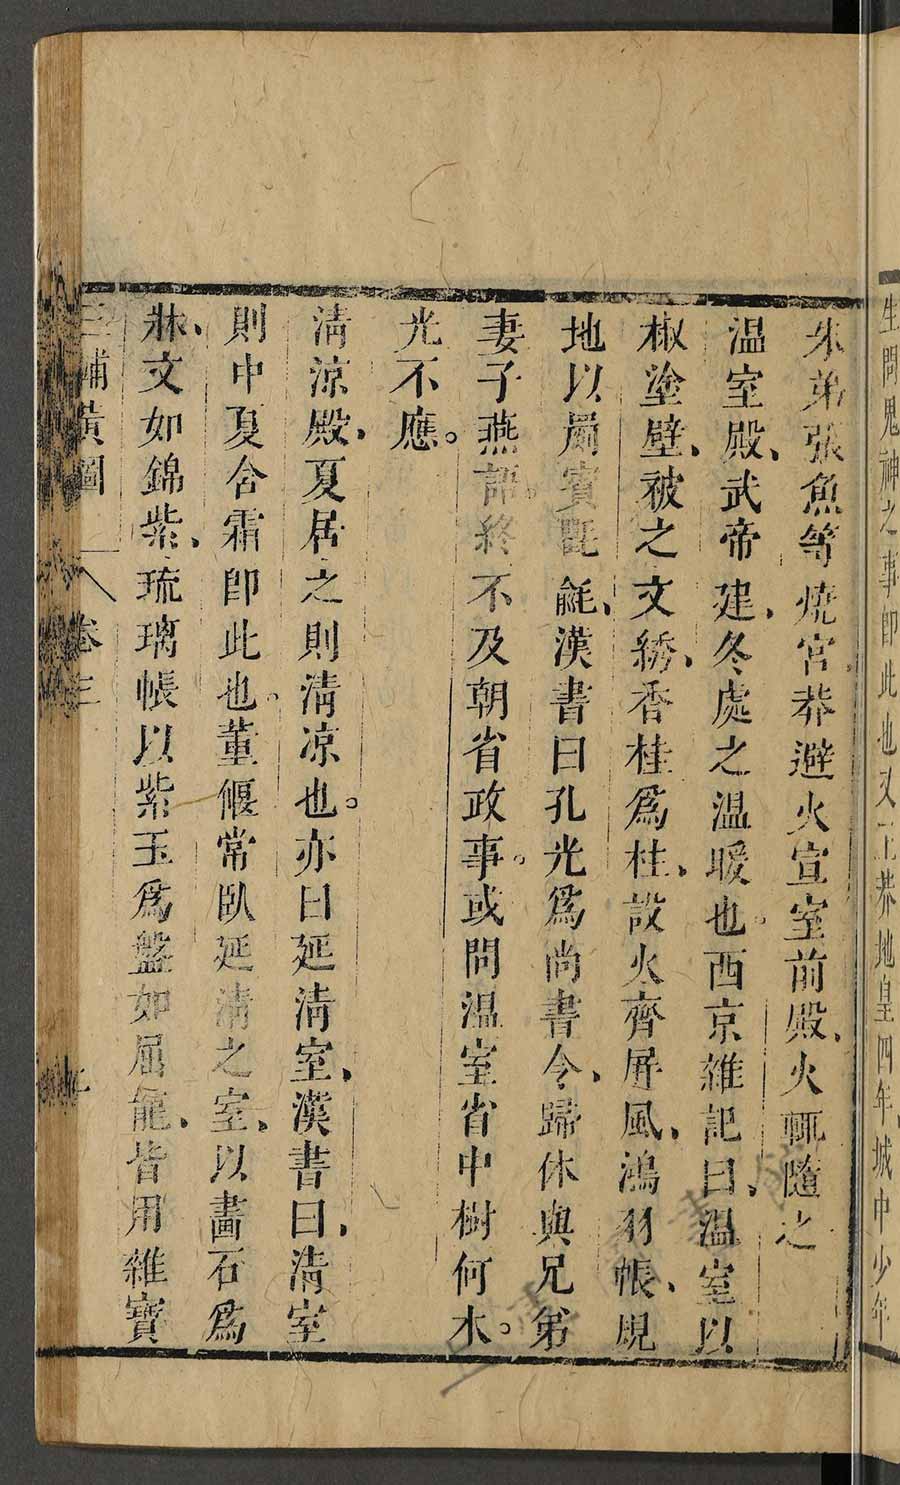 生問鬼神之事即此也又王莽地皇四年、城中少年
朱弟張魚等燒宮。莽避火宣室前殿、火輒隨之
温室殿、武帝建、冬處之温暖也。西京雜記曰、温室以
椒塗壁、被之文綉、香桂爲柱、設火齊屏風、鴻羽帳、規
地以罽賓氍毹、漢書曰孔光爲尚書令、歸休與兄弟
妻子燕語。終不及朝省政事。或問温室省中樹何木。
光不應。
清涼殿、夏居之則清凉也。亦曰延清室、漢書曰、清室
則中夏含霜即此也。董偃常臥延清之室、以畵石爲
牀、文如錦紫、琉璃帳以紫玉爲盤如屈龍、皆用雜寶
三輔黃圖 卷三